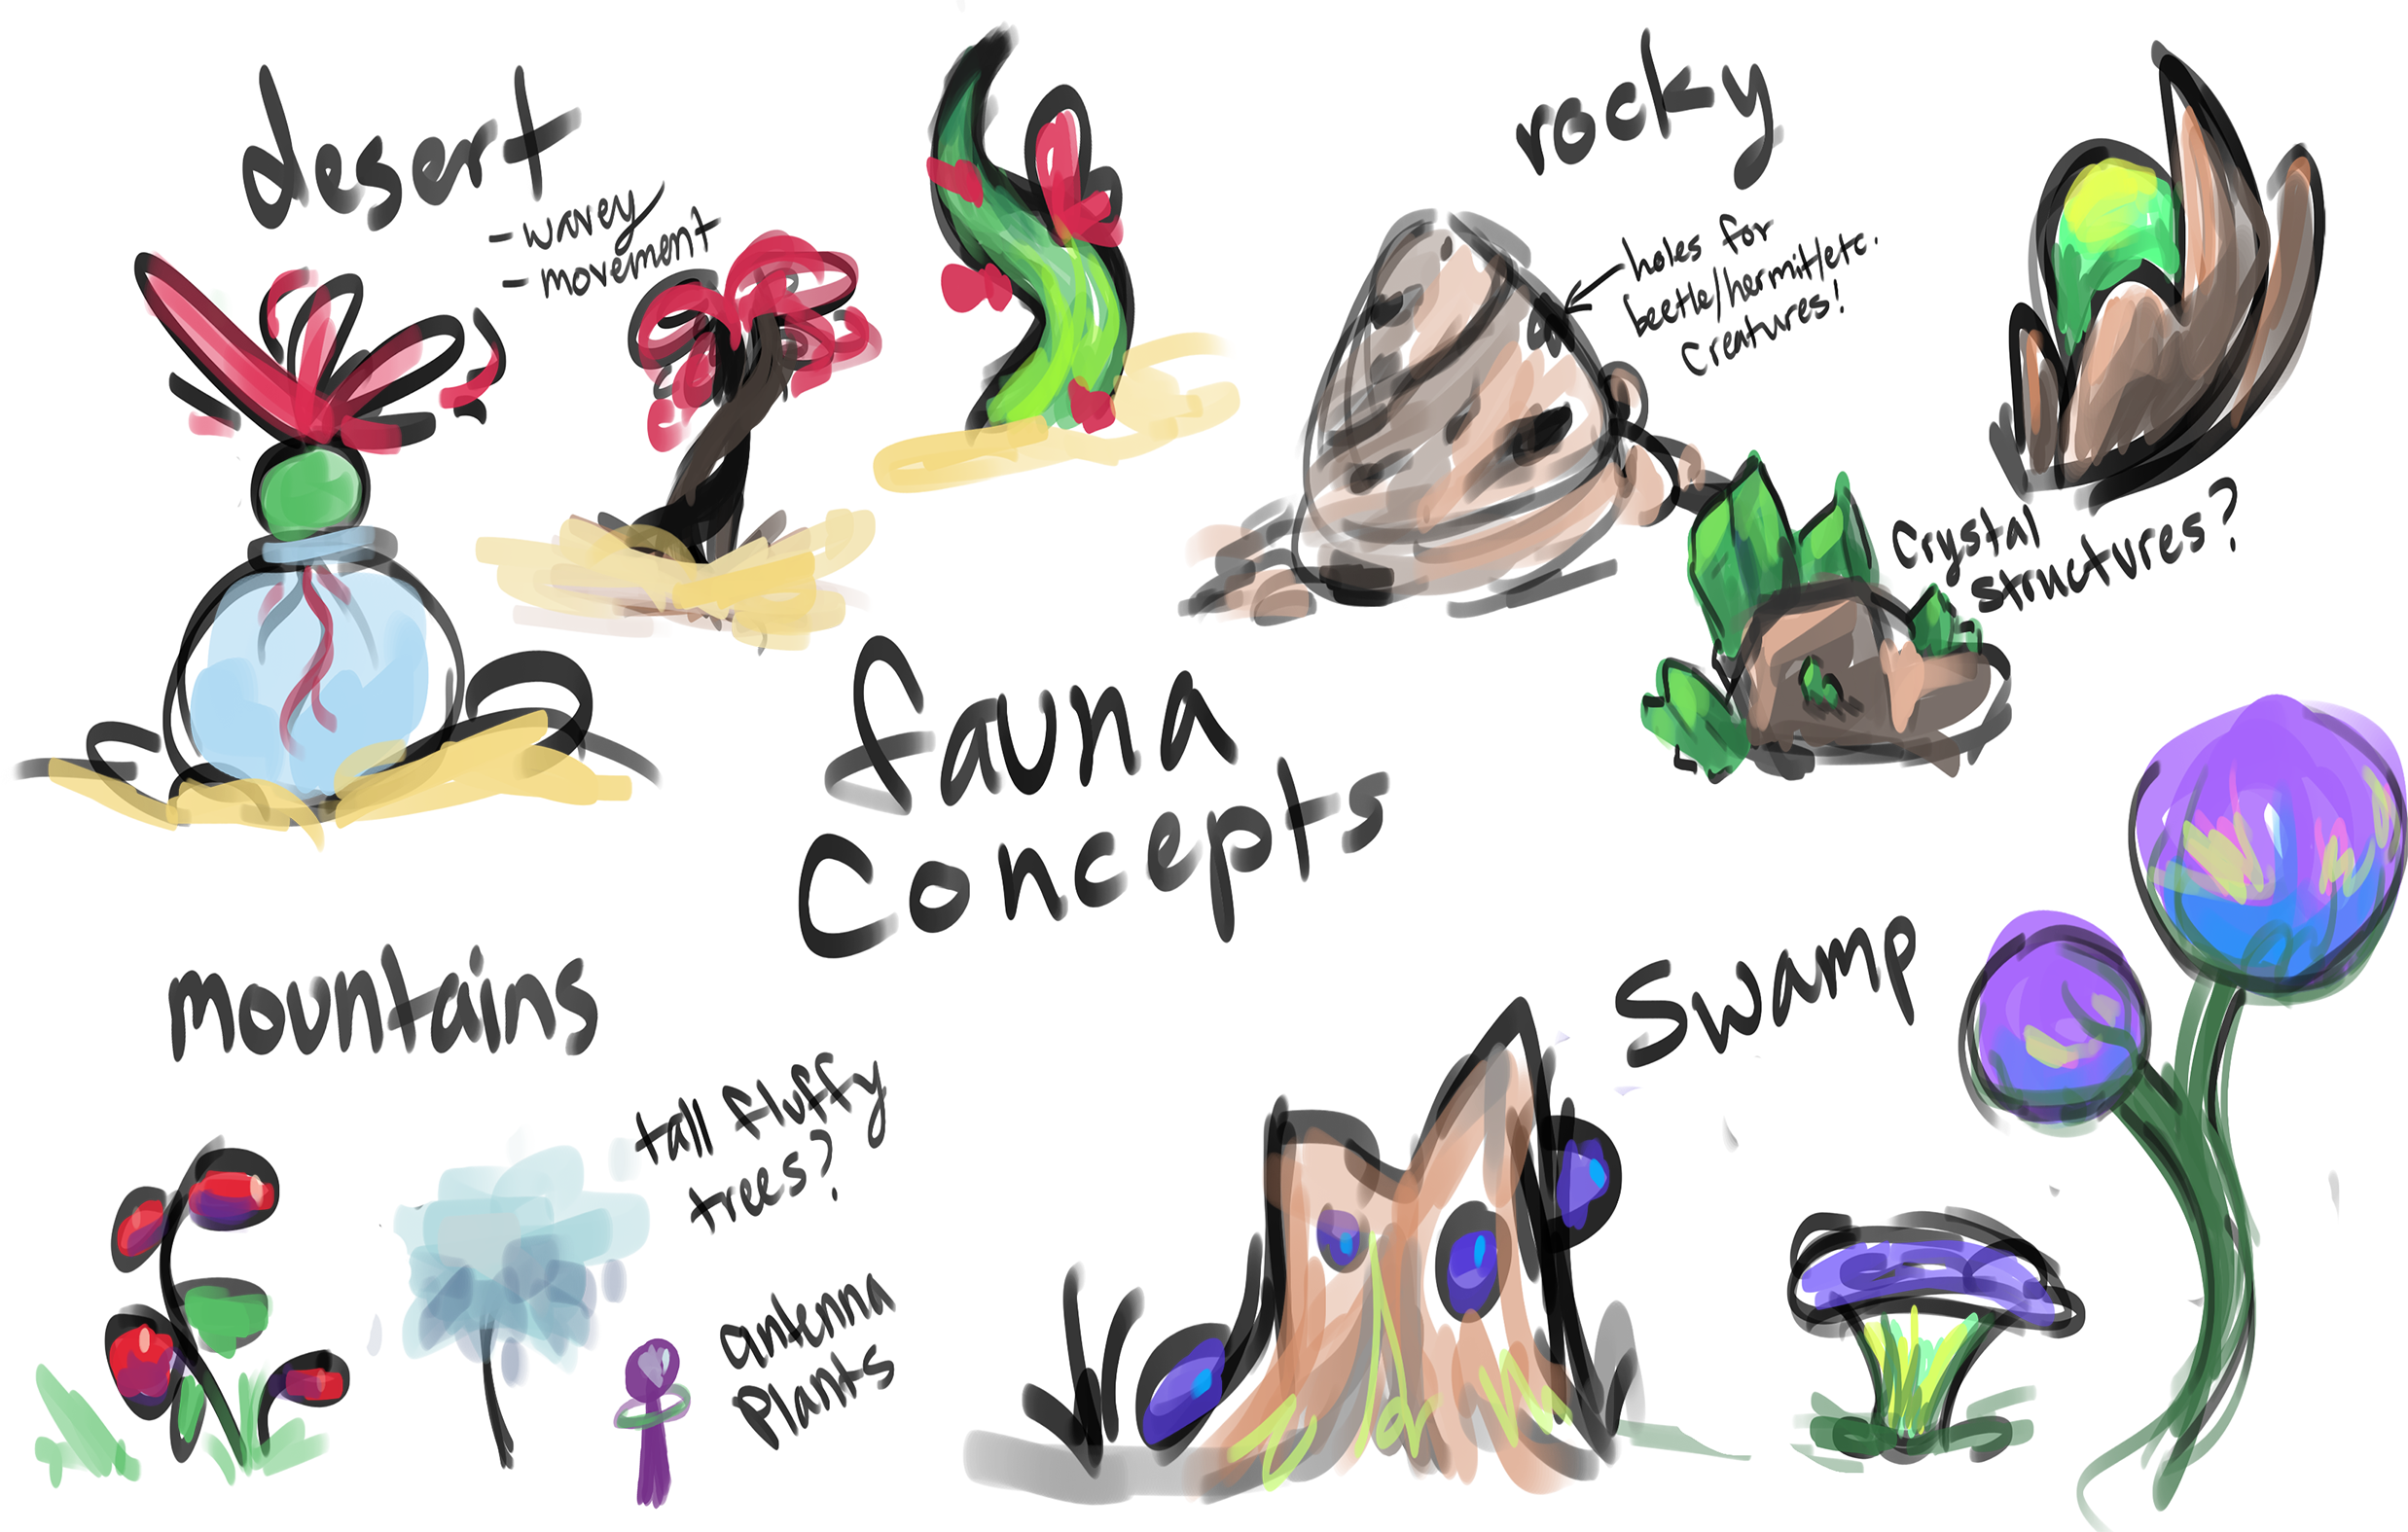 desert
- wavey
- movement
rocky
holes for
beetle/hermit/etc.
creatures!
Crystal
structures?
fauna
Concepts
mountains
tall fluffy
trees?
antenna
Plants
Swamp